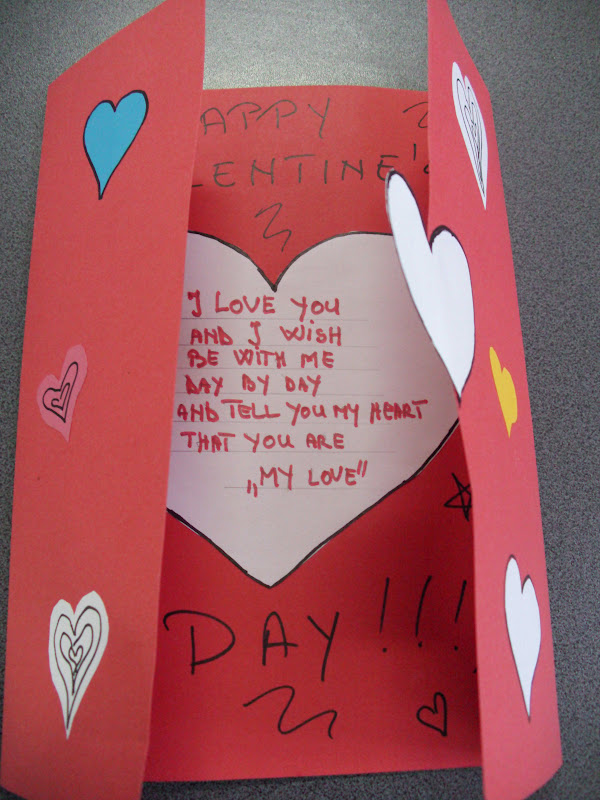 APPY
LENTINE'
I LOVE YOU
AND I WISH
BE WITH ME
DAY BY DAY
AND TELL YOU MY HEART
THAT YOU ARE
„MY LOVE"
DAY!!!